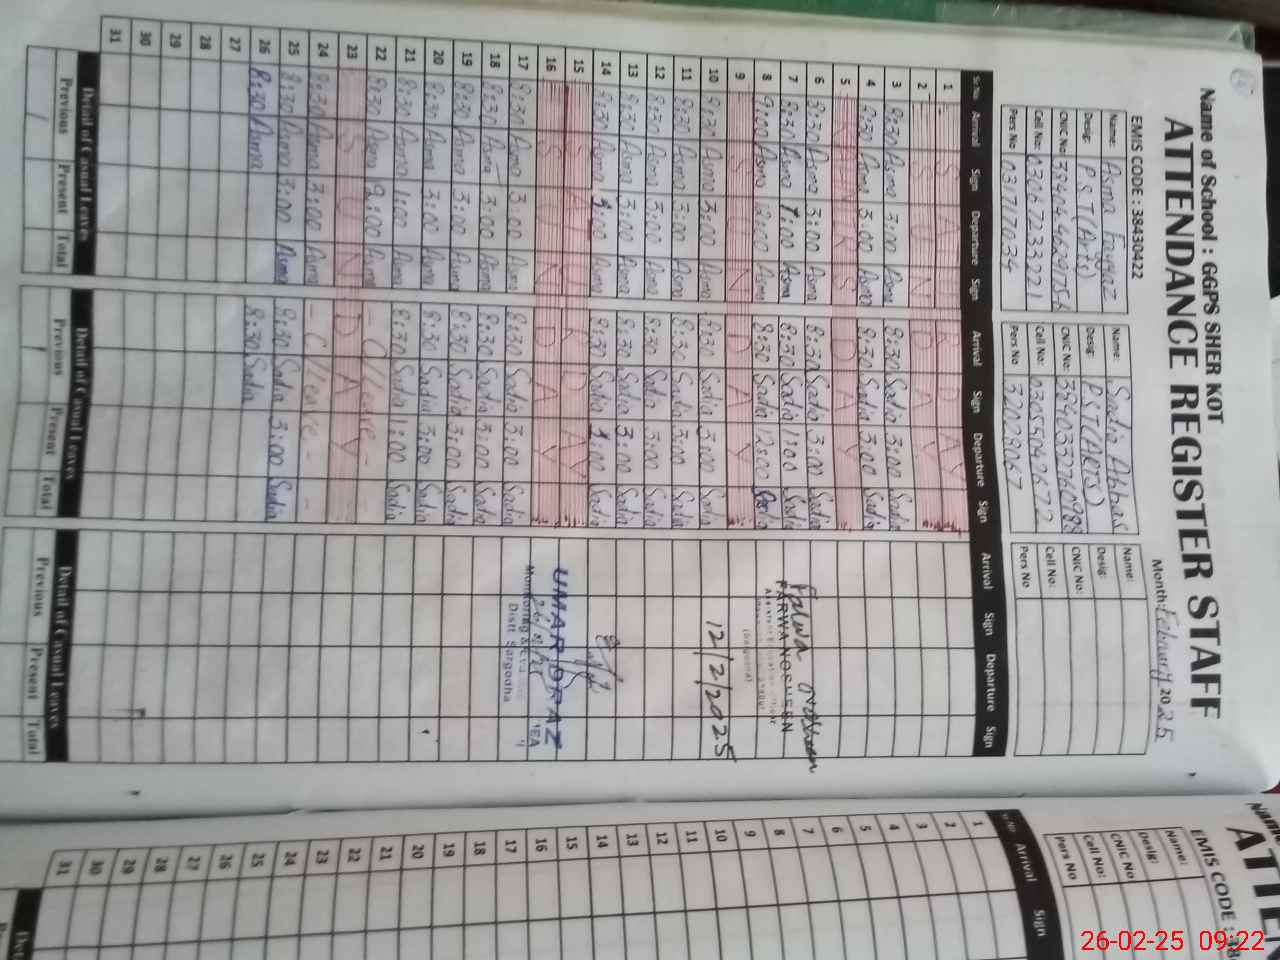 Name of School : GGPS SHER KOT
ATTENDANCE REGISTER STAFF
EMIS CODE : 38430422
Month: February 2025
Name: Asma Fayyaz
Desig: P.S.T(Arts)
CNIC No:
Cell No: 03067233221
Pers No 031717034
Name: Sadia Abbas
Desig: P.S.T(ARTS)
CNIC No:
Cell No: 03055042672
Pers No
Name:
Desig:
CNIC No:
Cell No:
Pers No
Sr.No Arrival Sign Departure Sign Arrival Sign Departure Sign Arrival Sign Departure Sign
1 S A T U R D A Y
2 S U N D A Y
3 8:30 Asma 3:00 Asma 8:30 Sadia 3:00 Sadia
4 8:30 Asma 3:00 Asma 8:30 Sadia 3:00 Sadia
5
6 8:30 Asma 3:00 Asma 8:30 Sadia 3:00 Sadia
7 8:30 Asma 1:00 Asma 8:30 Sadia 1:00 Sadia
8 9:00 Asma 12:00 Asma 8:30 Sadia 12:00 Sadia
9 S U N D A Y
10 8:30 Asma 3:00 Asma 8:30 Sadia 3:00 Sadia
11 8:30 Asma 3:00 Asma 8:30 Sadia 3:00 Sadia
12 8:30 Asma 3:00 Asma 8:30 Sadia 3:00 Sadia
13 8:30 Asma 3:00 Asma 8:30 Sadia 3:00 Sadia
14 8:30 Asma 1:00 Asma 8:30 Sadia 1:00 Sadia
15 S A T U R D A Y
16 S U N D A Y
17 8:30 Asma 3:00 Asma 8:30 Sadia 3:00 Sadia
18 8:30 Asma 3:00 Asma 8:30 Sadia 3:00 Sadia
19 8:30 Asma 3:00 Asma 8:30 Sadia 3:00 Sadia
20 8:30 Asma 3:00 Asma 8:30 Sadia 3:00 Sadia
21 8:30 Asma 1:00 Asma 8:30 Sadia 1:00 Sadia
22 8:30 Asma 9:00 Asma - C/leave -
23 S U N D A Y
24 8:30 Asma 3:00 Asma - C/leave - -
25 8:30 Asma 3:00 Asma 8:30 Sadia 3:00 Sadia
26 8:30 Asma 8:30 Sadia
27
28
29
30
31
FARWA NOSHEEN
12/2/2025
UMAR DRAZ
Distt Sargodha
Detail of Casual Leaves Detail of Casual Leaves Detail of Casual Leaves
Previous Present Total Previous Present Total Previous Present Total
Name
ATTEN
EMIS CODE : 38
Name:
Desig:
CNIC No
Cell No:
Pers No
Sr.No Arrival Sign
1
2
3
4
5
6
7
8
9
10
11
12
13
14
15
16
17
18
19
20
21
22
23
24
25
26
27
28
29
30
31
26-02-25 09:22